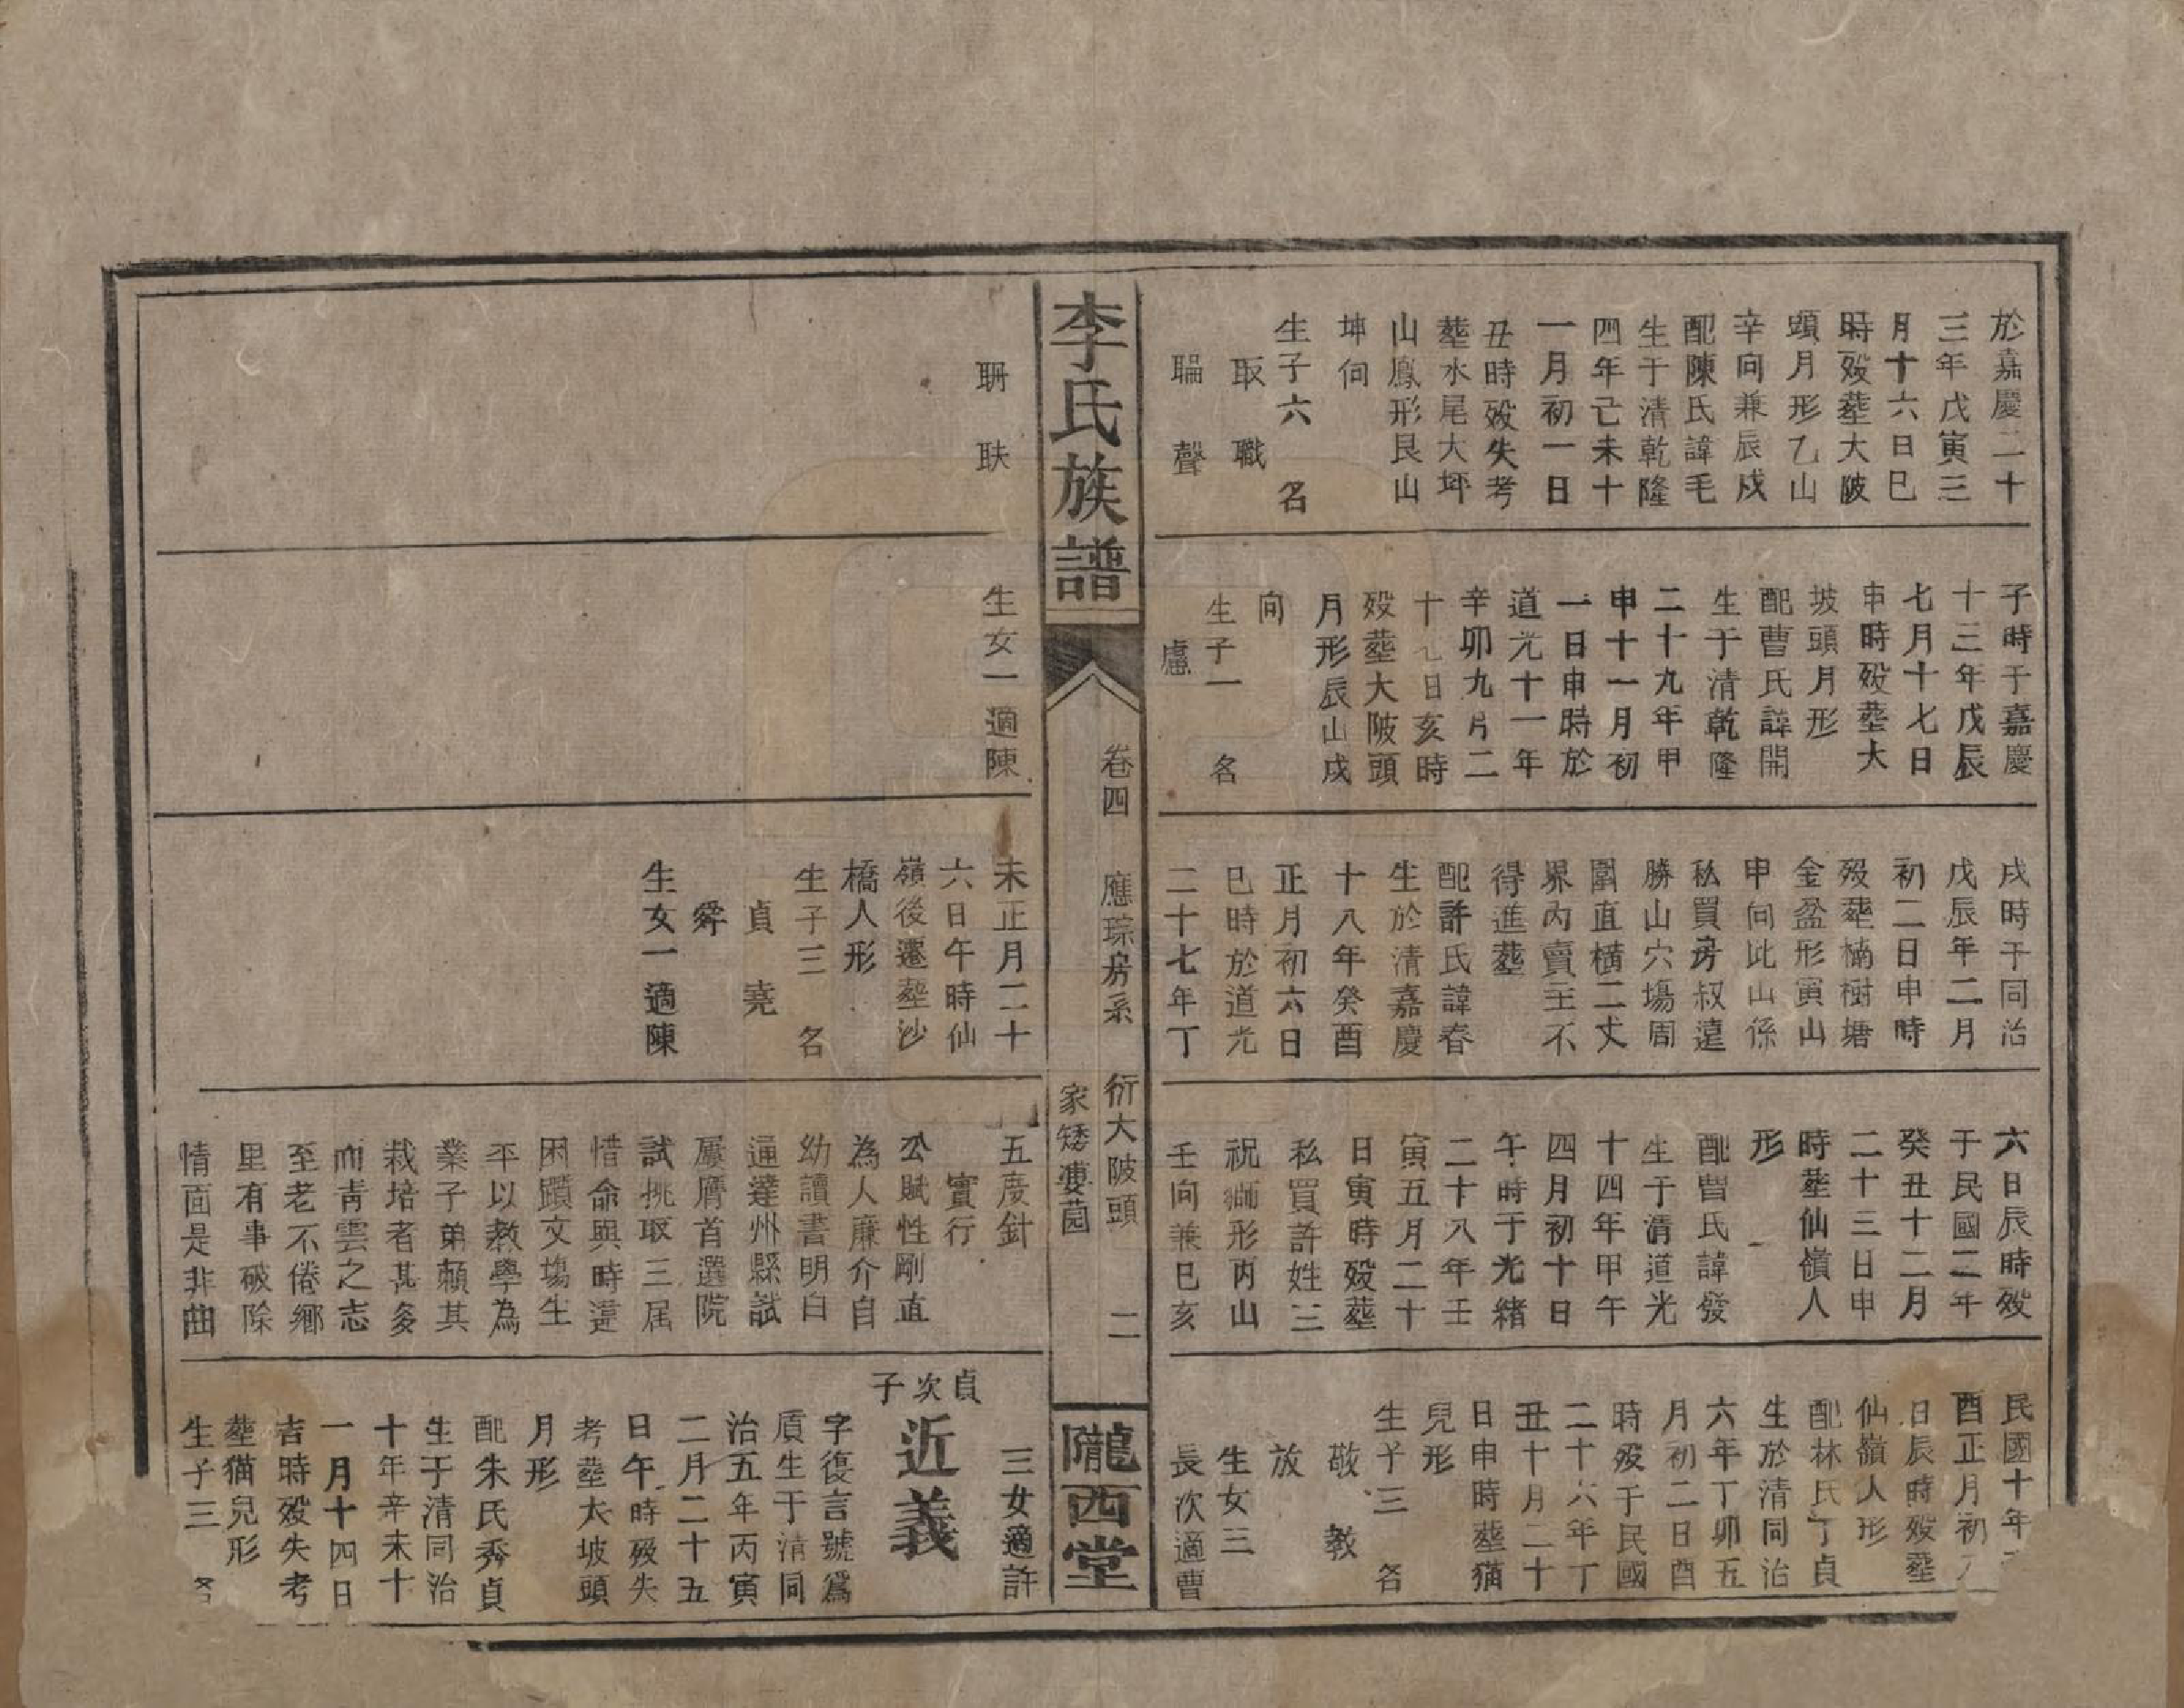 於嘉慶二十
三年戊寅三
月十六日巳
時歿塟大陂
頭月形乙山
辛向兼辰戌
配陳氏諱毛
生于清乾隆
四年己未十
一月初一日
丑時歿失考
塟水尾大坪
山鳳形艮山
坤向
生子六 名
取 職
聑 聲
子時于嘉慶
十三年戊辰
七月十七日
申時歿塟大
坡頭月形
配曹氏諱開
生于清乾隆
二十九年甲
申十一月初
一日申時於
道光十一年
辛卯九月二
十 日亥時
歿塟大陂頭
月形辰山戌
向
生子一 名
慮
戌時于同治
戊辰年二月
初二日申時
歿塟楠樹塘
金盆形寅山
申向此山係
私買房叔遠
勝山穴塲周
圍直橫二丈
界內賣主不
得進塟
配許氏諱春
生於清嘉慶
十八年癸酉
正月初六日
巳時於道光
二十七年丁
六日辰時歿
于民國二年
癸丑十二月
二十三日申
時塟仙嶺人
形
配曾氏諱發
生于清道光
十四年甲午
四月初十日
午時于光緒
二十八年壬
寅五月二十
日寅時歿塟
私買許姓三
祝獅形丙山
壬向兼巳亥
民國十年
酉正月初
日辰時歿塟
仙嶺人形
配林氏丁貞
生於清同治
六年丁卯五
月初二日酉
時歿于民國
二十六年丁
丑十月二十
日申時塟猫
兒形
生子三 名
敬 教
放
生女三
長次適曹
李氏族譜
卷四 應琮房系 衍大陂頭
家矮婁茴
二
隴西堂
聠 聗
生女一適陳
未正月二十
六日午時仙
嶺後遷塟沙
橋人形
生子三 名
貞 堯
舜
生女一適陳
五度針
實行
公賦性剛直
為人廉介自
幼讀書明白
通達州縣試
屢膺首選院
試挑取三屆
惜命與時違
困躓文塲生
平以教學為
業子弟賴其
栽培者甚多
而青雲之志
至老不倦鄉
里有事破除
情面是非曲
三女適許
貞次子
近義
字復言號爲
質生于清同
治五年丙寅
二月二十五
日午時歿失
考塟大坡頭
月形
配朱氏秀貞
生于清同治
十年辛未十
一月十四日
吉時歿失考
塟猫兒形
生子三 名